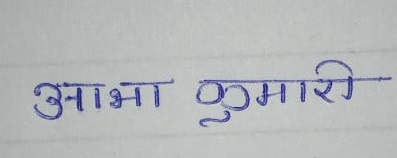 आभा कुमारी